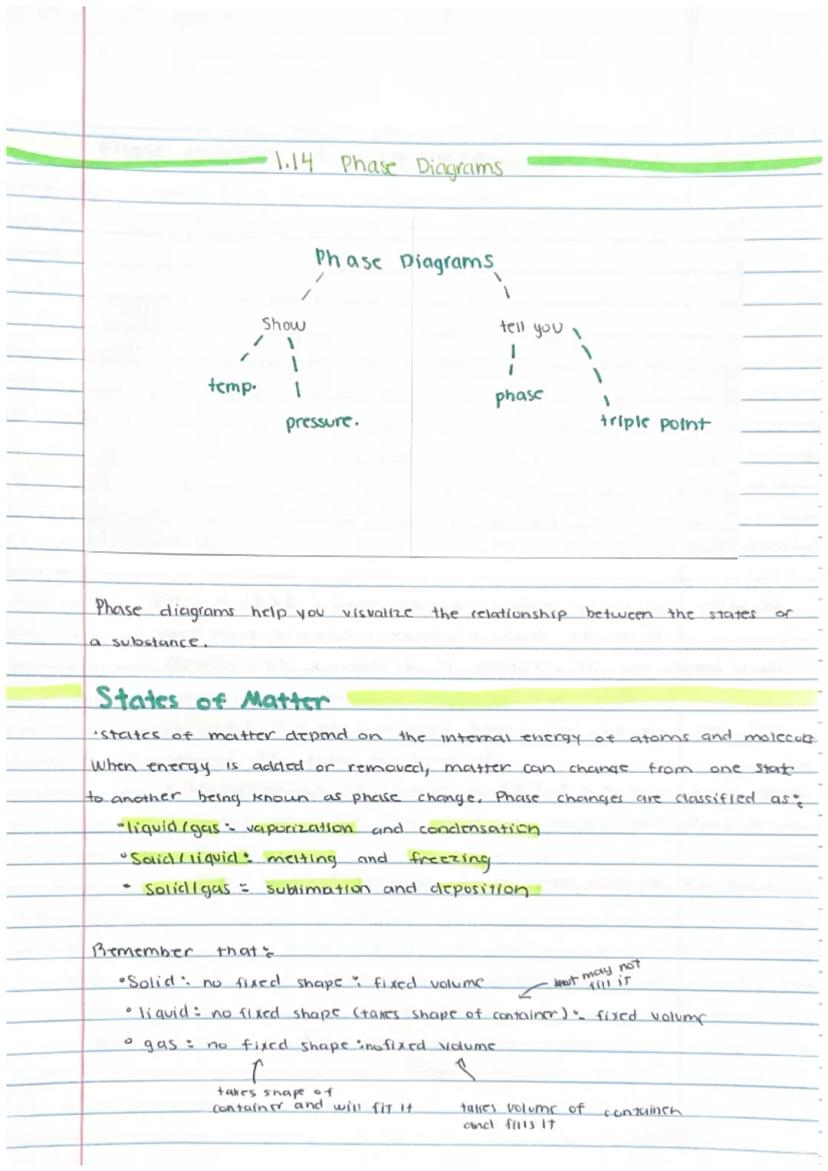 1.14 Phase Diagrams
Phase Diagrams
Show
tell you
temp.
phase
pressure.
triple point
Phase diagrams help you visualize the relationship between the states of
a substance.
States of Matter
• states of matter depend on the internal energy of atoms and molecules
When energy is added or removed, matter can change from one state
to another being known as phase change. Phase changes are classified as:
• liquid/gas: vaporization and condensation
• Soild/liquid: melting and freezing
• Solid/gas: sublimation and deposition
Remember that:
• Solid: no fixed shape: fixed volume
but may not
fill it
• liquid: no fixed shape (takes shape of container): fixed volume
• gas: no fixed shape: no fixed volume
takes shape of
container and will fit it
takes volume of container
and fills it